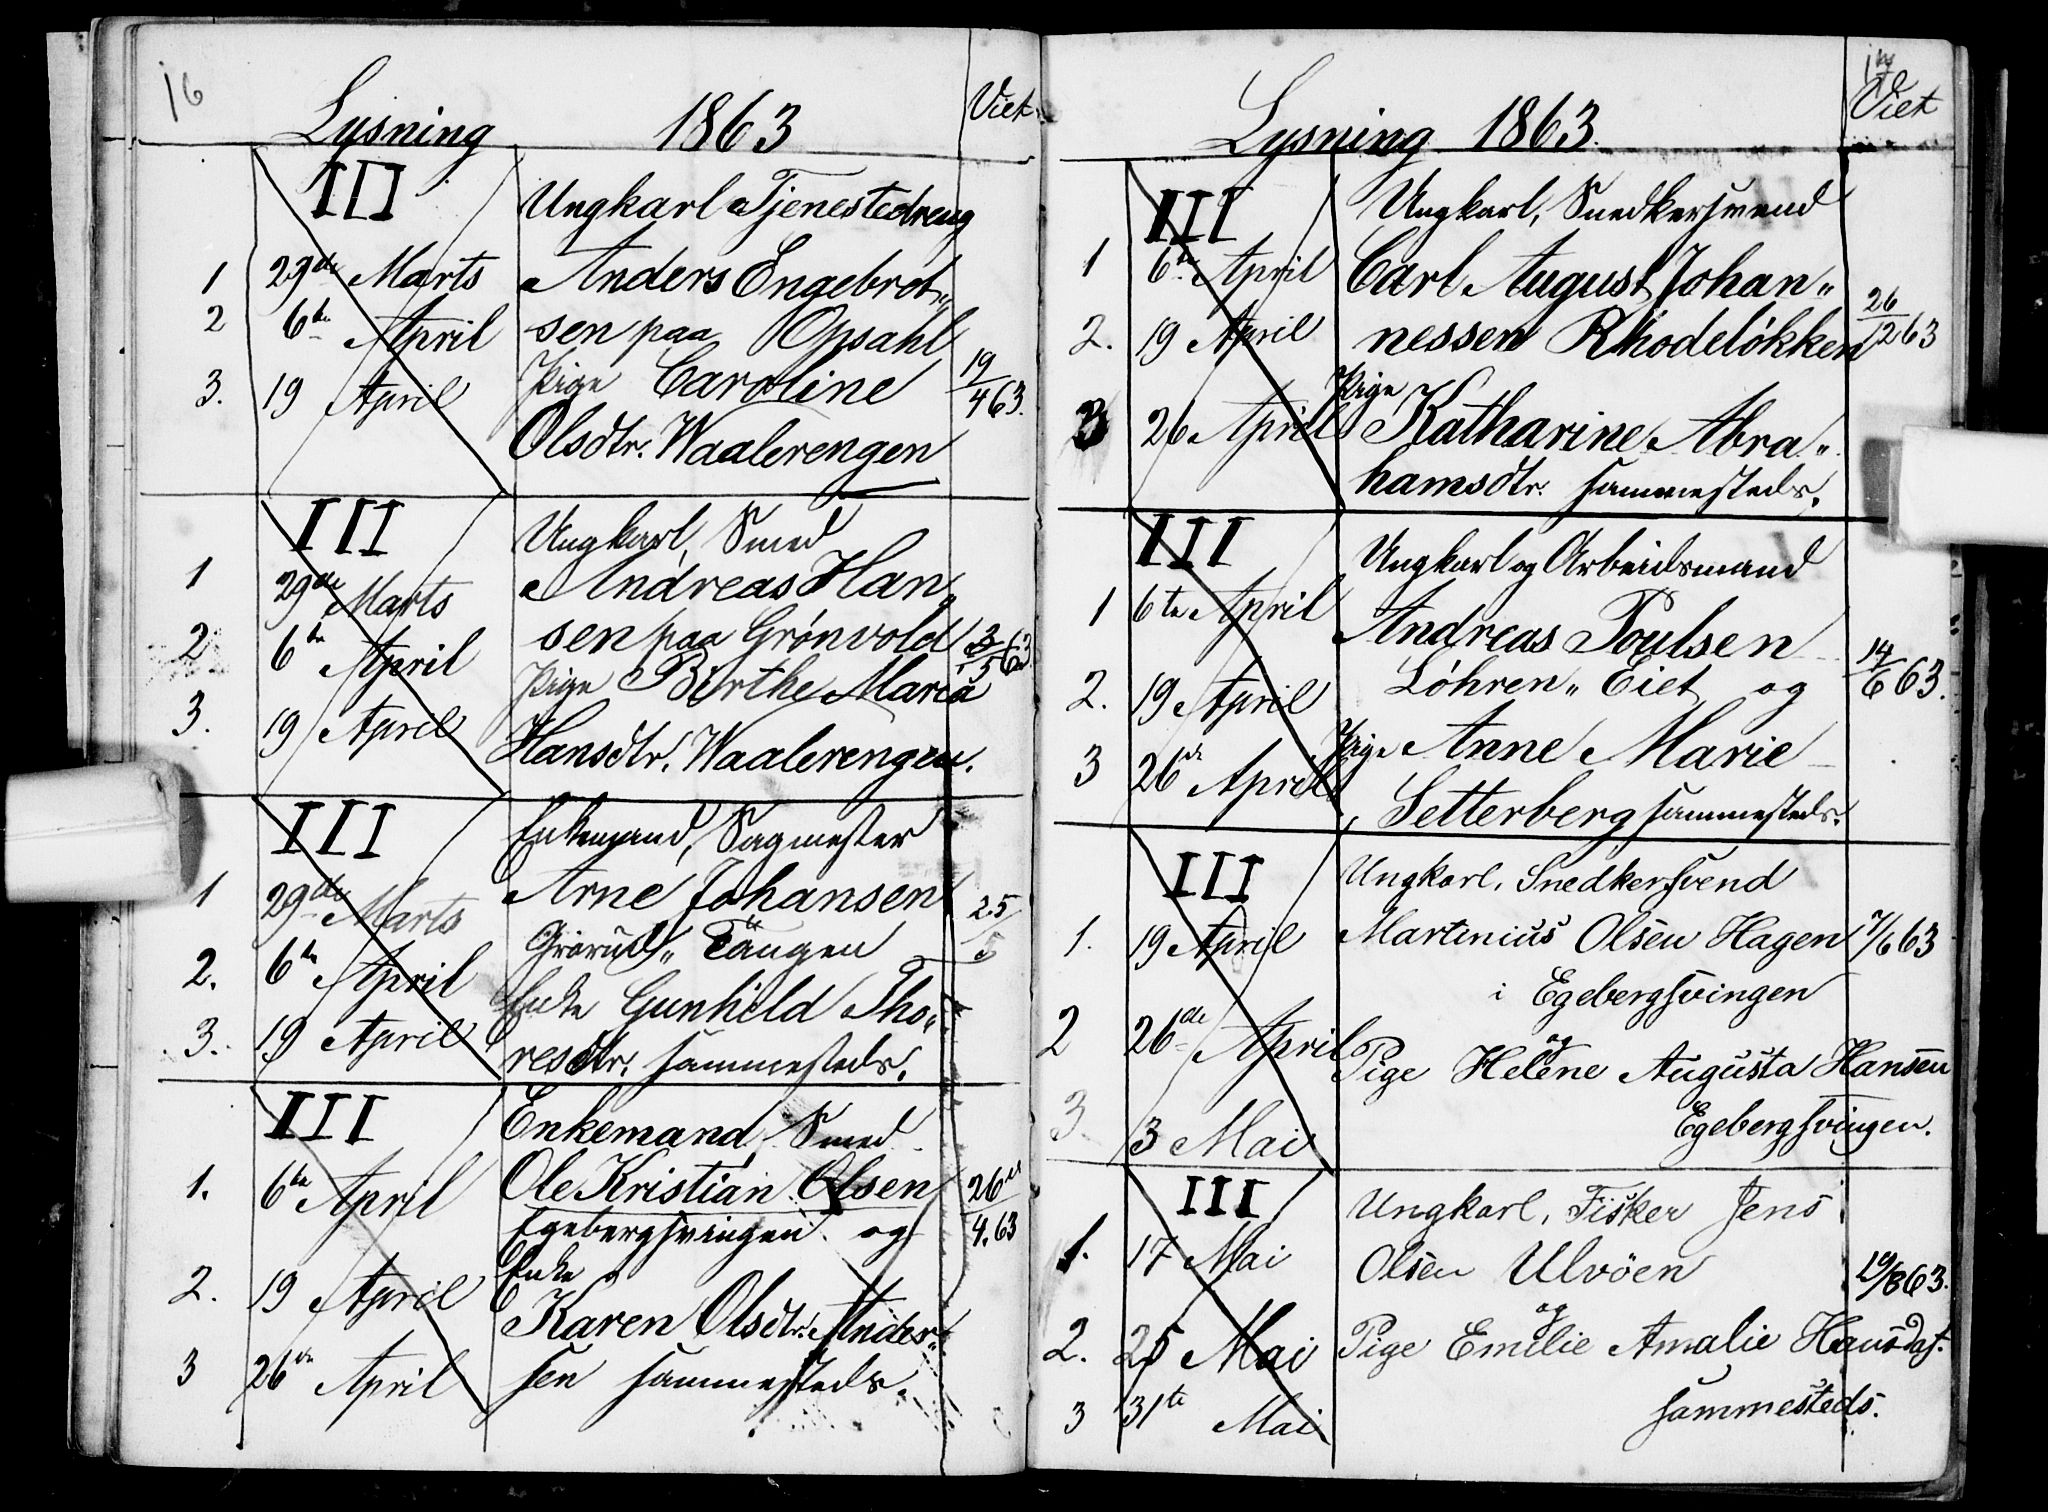 16
Lysning 1863 Viet
III Ungkarl Tjenestedreng
1 29de Marts Anders Engebret„
2 6te April sen paa Opsahl
3. 19 April Pige Caroline 19/4 63.
Olsdtr. Waalerengen
III Ungkarl, Smed
1 29de Marts Andreas Han„
2 6te April sen paa Grönvold 3/5 63
Pige Birthe Maria
3. 19 April Hansdtr. Waalerengen.
III Enkemand, Sagmester
1 29de Marts Arne Johansen 25/5
2. 6te April Grorud„ Tangen
Enke Gunhild Tho„
3. 19 April resdtr. sammesteds.
III Enkemand, Smed
1. 6te April Ole Kristian Olsen 26de/4. 63
Egebergsvingen og
2. 19 April Enke
Karen Olsdtr. Anders„
3 26de April sen sammesteds.
17
Lysning 1863. Viet
III Ungkarl, Snedkersvend
1 6te April Carl August Johan„
2. 19 April nessen Rhodeløkken 26/12 63
3 26 April Pige Katharine Abra„
hamsdtr. sammesteds.
III Ungkarl og Arbeidsmand
1 6te April Andreas Poulsen
2. 19 April Löhren„ Eiet og 14/6 63.
3 26de April Pige Anne Marie
Setterberg sammesteds.
III Ungkarl, Snedkersvend
1. 19 April Martinius Olsen Hagen 7/6 63
i Egebergsvingen
og
2 26de April Pige Helene Augusta Hansen
3. 3 Mai Egebergsvingen.
III Ungkarl, Fisker Jens
1. 17 Mai Olsen Ulvöen 19/8 63.
og
2. 25 Mai Pige Emilie Amalie Hansdat.
3 31te Mai sammesteds.